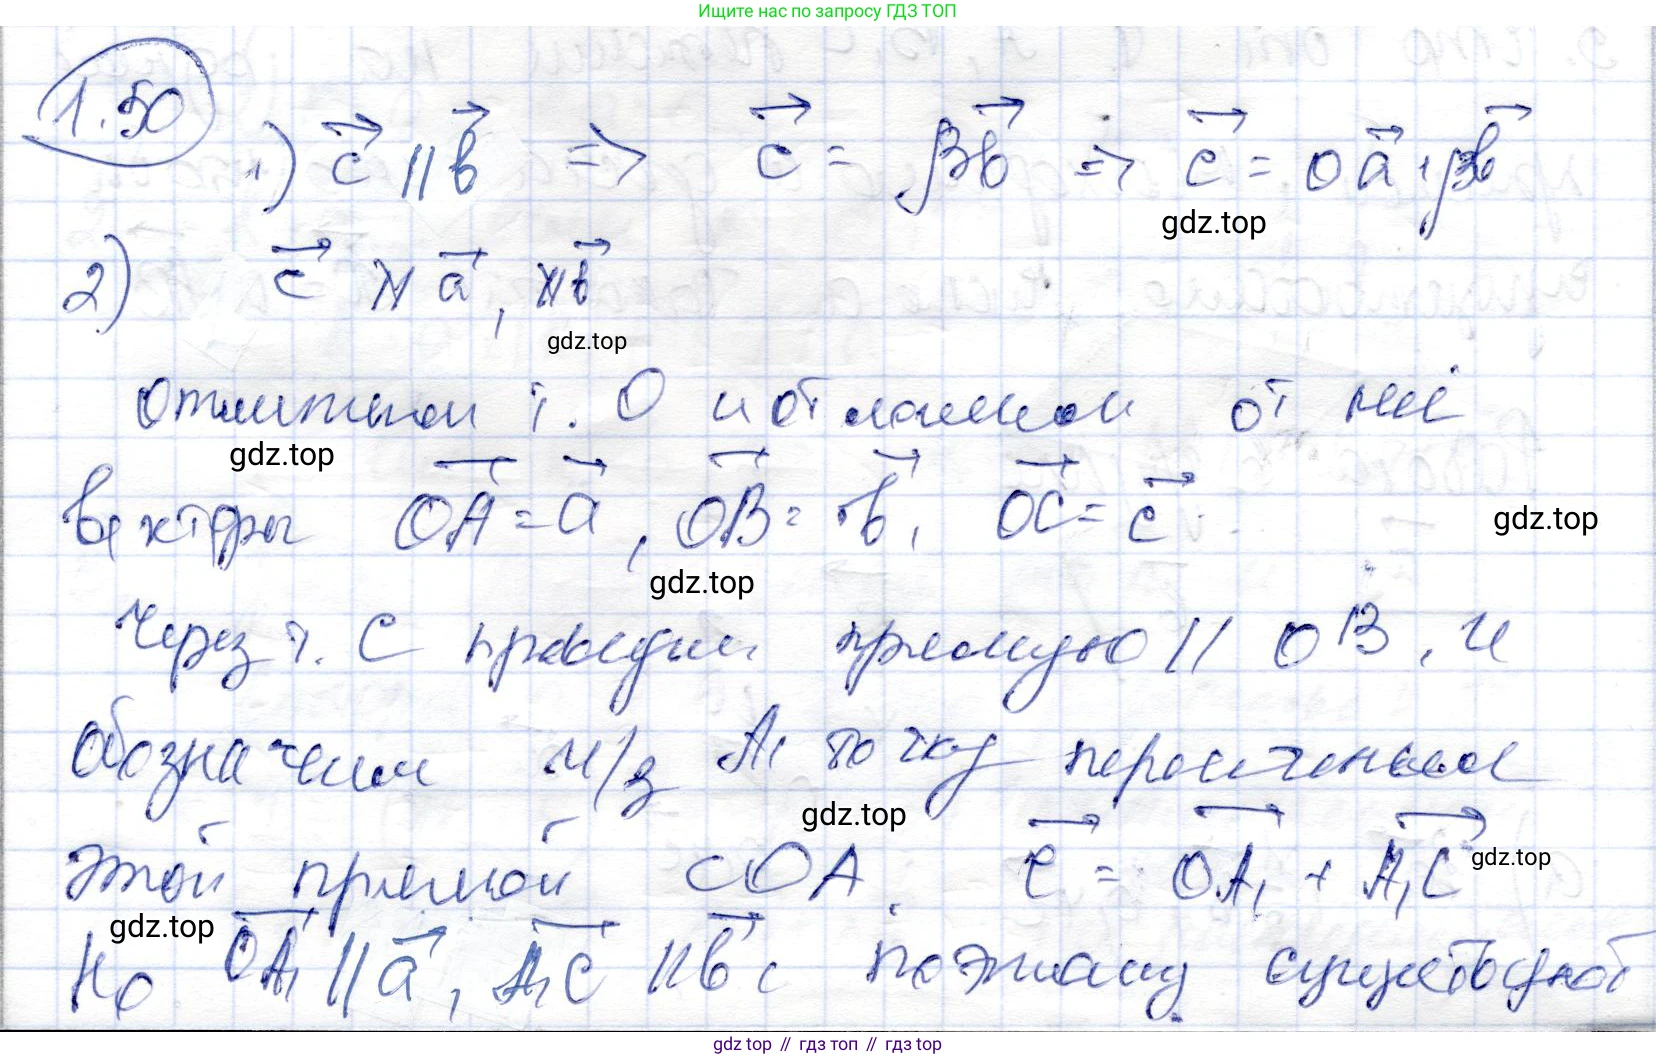 Ищите нас по запросу ГДЗ ТОП
1.50
1) c⃗ || b⃗ => c⃗ = βb⃗ => c⃗ = 0a⃗ + βb⃗
gdz.top
2) c⃗ ∦ a⃗, ∦ b⃗
gdz.top
отметим т. O и отложим от неё
gdz.top
векторы OA⃗ = a⃗, OB⃗ = b⃗, OC⃗ = c⃗
gdz.top
gdz.top
Через т. C проведем прямую || OB, и
обозначим ч/з A₁ точку пересечения
gdz.top
этой прямой с OA. c⃗ = OA₁⃗ + A₁C⃗
gdz.top
gdz.top
Но OA₁⃗ || a⃗, A₁C⃗ || b⃗ поэтому существуют
gdz.top // гдз топ // гдз top